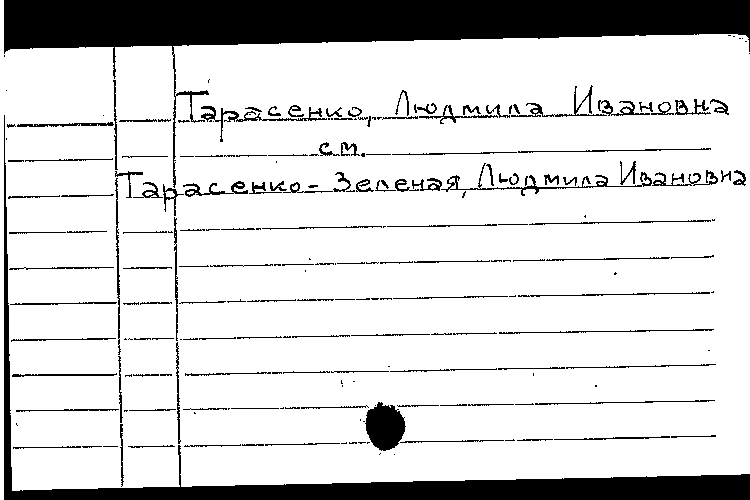 Тарасенко, Людмила Ивановна
см.
Тарасенко-Зеленая, Людмила Ивановна